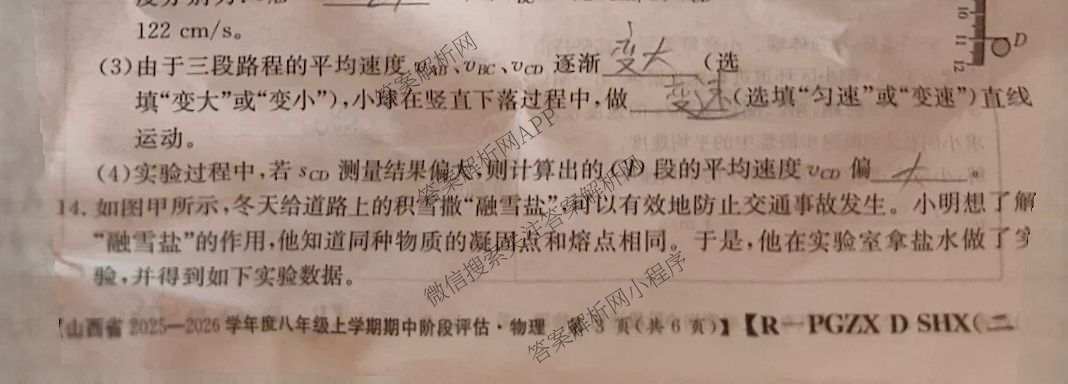 122 cm/s。
D
(3)由于三段路程的平均速度 vAB、vBC、vCD 逐渐 变大 (选
填“变大”或“变小”),小球在竖直下落过程中,做 变速 (选填“匀速”或“变速”)直线
运动。
(4)实验过程中,若 sCD 测量结果偏大,则计算出的 CD 段的平均速度 vCD 偏 大 。
14. 如图甲所示,冬天给道路上的积雪撒“融雪盐”,可以有效地防止交通事故发生。小明想了解
“融雪盐”的作用,他知道同种物质的凝固点和熔点相同。于是,他在实验室拿盐水做了实
验,并得到如下实验数据。
【山西省 2025—2026 学年度八年级上学期期中阶段评估·物理 第 3 页(共 6 页)】【R—PGZX D SHX(二
答案解析网
答案解析网APP
微信搜索关注答案解析网
答案解析网小程序